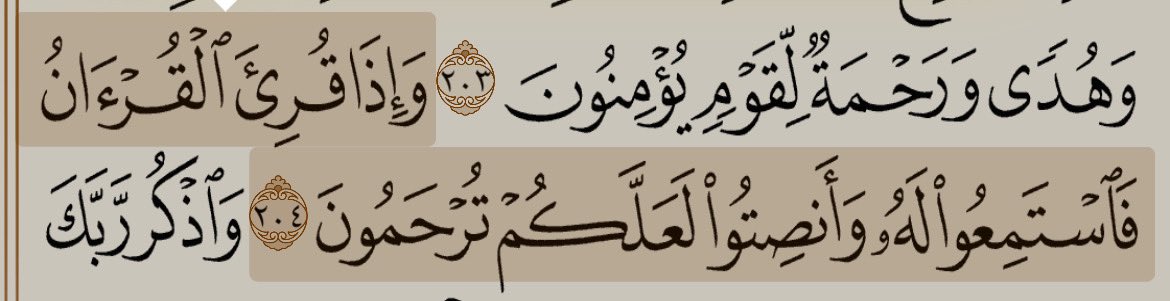 وَهُدًى وَرَحْمَةٌ لِّقَوْمٍ يُؤْمِنُونَ ٢٠٣ وَإِذَا قُرِئَ ٱلْقُرْءَانُ
فَٱسْتَمِعُوا۟ لَهُۥ وَأَنصِتُوا۟ لَعَلَّكُمْ تُرْحَمُونَ ٢٠٤ وَٱذْكُر رَّبَّكَ